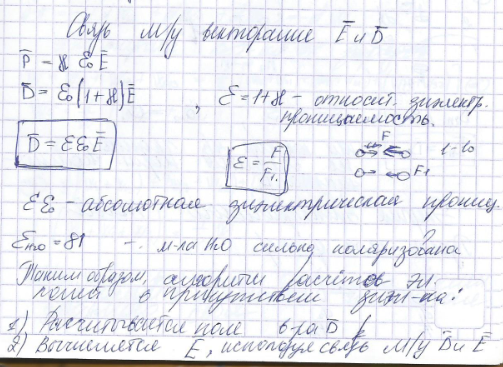 Связь м/у векторами E̅ и D̅
P̅ = ϰ ε₀ E̅
D̅ = ε₀(1+ϰ)E̅ , ε = 1+ϰ – относит. диэлектр. проницаемость.
D̅ = εε₀E̅
ε = F/F₁.
F
F₁
εε₀ – абсолютная диэлектрическая прониц.
εH₂O = 81 – м-ла H₂O сильно поляризована
Таким образом, алгоритм расчётов эл.
полей в присутствии диэл-ка:
1) Рассчитывается поле в-ра D̅
2) Вычисляется E̅, используя связь м/у D̅ и E̅